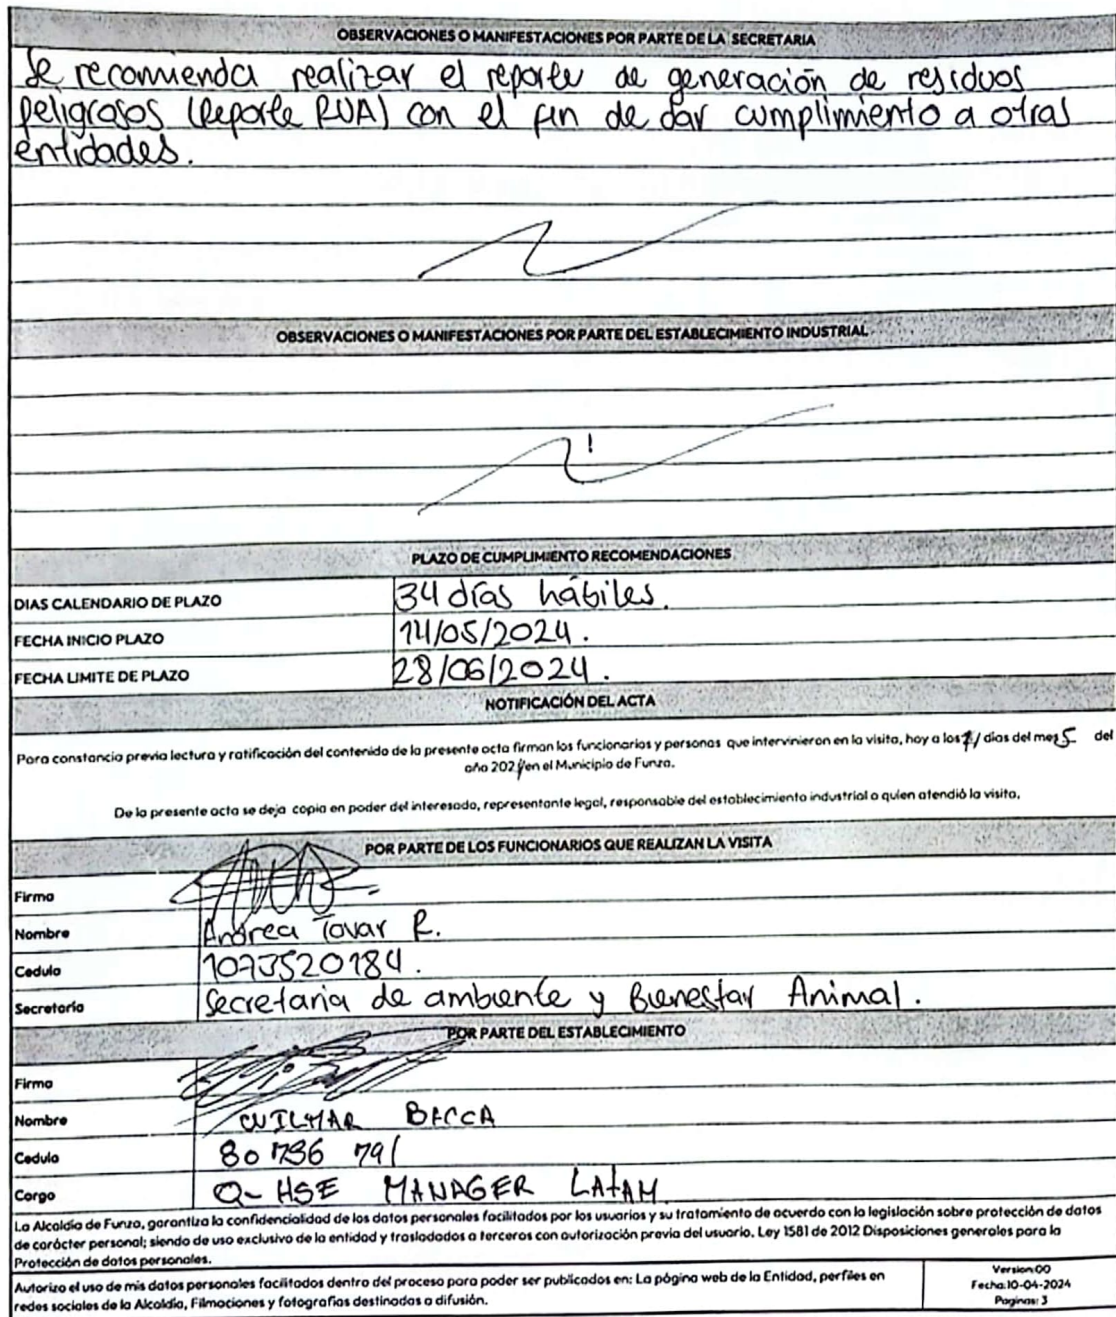 OBSERVACIONES O MANIFESTACIONES POR PARTE DE LA SECRETARIA
Se recomienda realizar el reporte de generación de residuos
peligrosos (Reporte RUA) con el fin de dar cumplimiento a otras
entidades.
OBSERVACIONES O MANIFESTACIONES POR PARTE DEL ESTABLECIMIENTO INDUSTRIAL
PLAZO DE CUMPLIMIENTO RECOMENDACIONES
DIAS CALENDARIO DE PLAZO 34 días hábiles.
FECHA INICIO PLAZO 14/05/2024.
FECHA LIMITE DE PLAZO 28/06/2024.
NOTIFICACIÓN DEL ACTA
Para constancia previa lectura y ratificación del contenido de la presente acta firman los funcionarios y personas que intervinieron en la visita, hoy a los días del mes 5 del
año 2024 en el Municipio de Funza.
De la presente acta se deja copia en poder del interesado, representante legal, responsable del establecimiento industrial o quien atendió la visita.
POR PARTE DE LOS FUNCIONARIOS QUE REALIZAN LA VISITA
Firma
Nombre Andrea Tovar R.
Cedula 1073520184.
Secretaría Secretaria de ambiente y Bienestar Animal.
POR PARTE DEL ESTABLECIMIENTO
Firma
Nombre WILMAR BACCA
Cedula 80 736 791
Cargo Q-HSE MANAGER LATAM
La Alcaldía de Funza, garantiza la confidencialidad de los datos personales facilitados por los usuarios y su tratamiento de acuerdo con la legislación sobre protección de datos
de carácter personal; siendo de uso exclusivo de la entidad y trasladados a terceros con autorización previa del usuario. Ley 1581 de 2012 Disposiciones generales para la
Protección de datos personales.
Autorizo el uso de mis datos personales facilitados dentro del proceso para poder ser publicados en: La página web de la Entidad, perfiles en
redes sociales de la Alcaldía, Filmaciones y fotografías destinadas a difusión.
Version:00
Fecha:10-04-2024
Paginas: 3